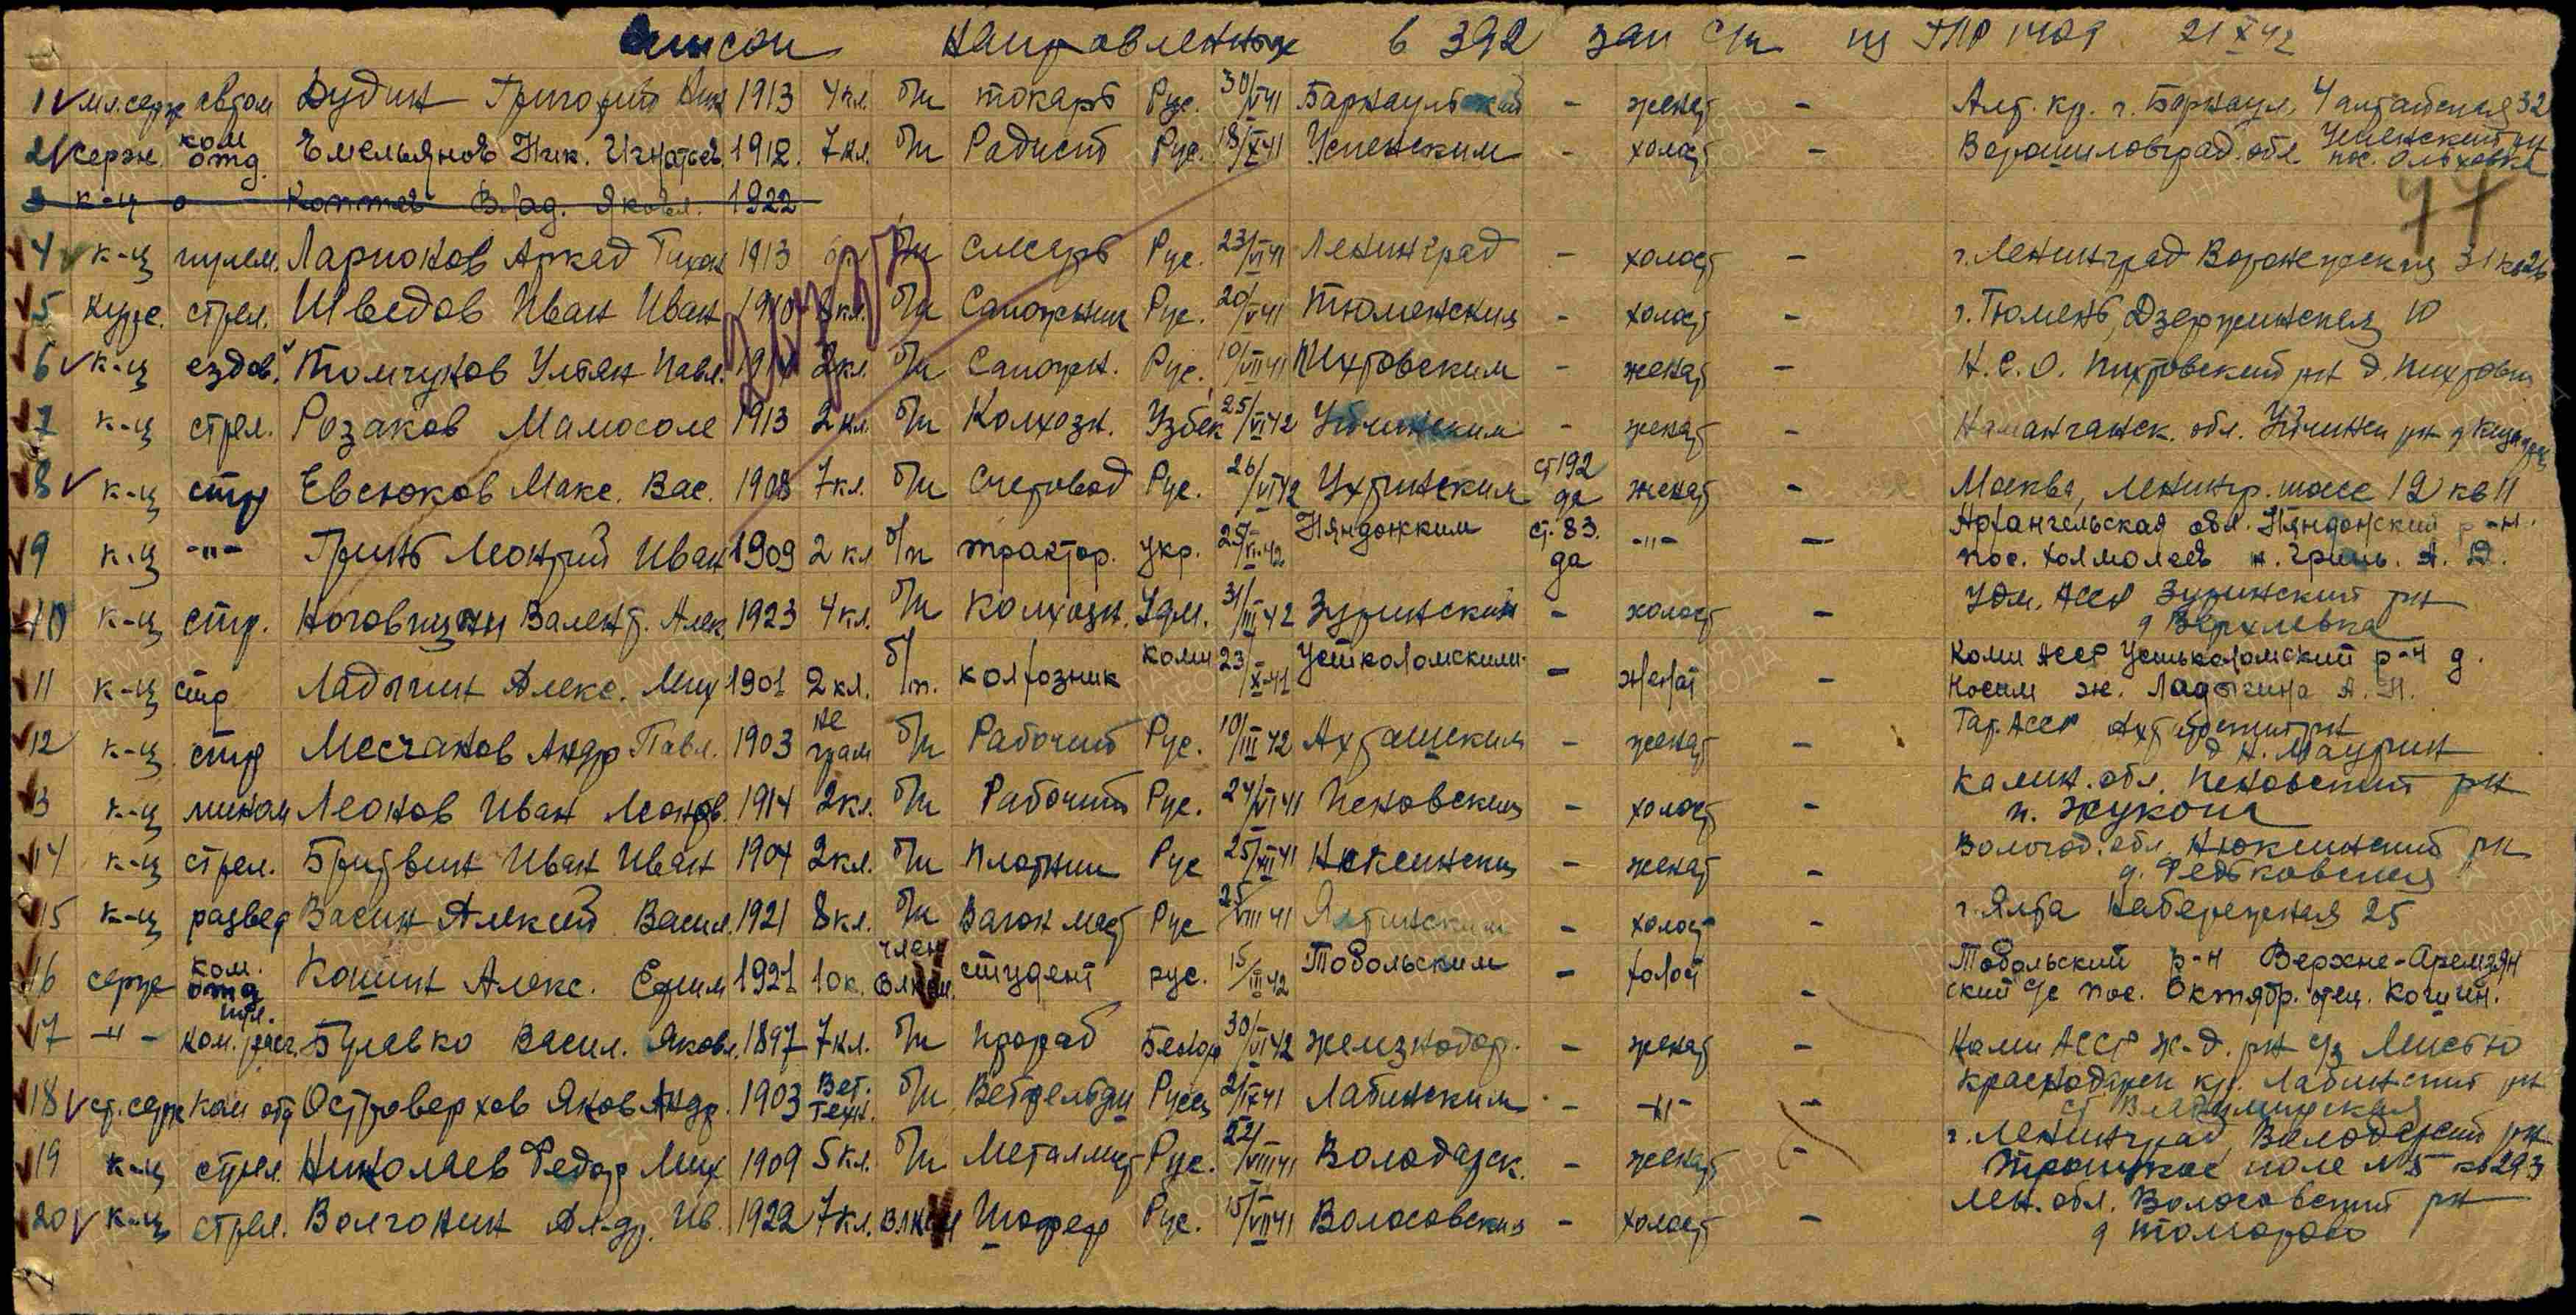 Список направленных в 392 зап с/п из ГПР 1409 21 X 42
1 мл. серж автом Дудин Григорий Ник 1913 4 кл. б/п токарь Рус. 30/VI 41 Барнаульский - женат - Алт. кр. г. Барнаул, 4 алтайская 32
2 серж. ком отд. Емельянов Ник. Игнатьев. 1912. 7 кл. б/п Радист Рус. 18/X 41 Успенским - холост - Ворошиловград. обл. Успенский рн пос. Ольховка
3 к-ц Коптев Влад. Яковл. 1922
77
4 к-ц пулем. Ларионов Аркад Тихон 1913 б/п слесарь Рус. 23/VI 41 Ленинград - холост - г. Ленинград Воронежская 31 кв 26
5 курс. стрел. Шведов Иван Иван 1910 8 кл. б/п Сапожник Рус. 20/V 41 Тюменским - холост - г. Тюмень, Дзержинская 10
6 к-ц ездов. Томчуков Ульян Павл. 2 кл. б/п Сапожн. Рус. 10/VII 41 Пихтовским - женат - Н.С.О. Пихтовский рн д. Пихтовка
7 к-ц стрел. Розаков Мамосоле 1913 2 кл. б/п Колхозн. Узбек 25/VI 42 - женат - Наманганск. обл. рн
8 к-ц стр Евсюков Макс. Вас. 1908 7 кл. б/п Счетовод Рус. 26/VI 42 Ухтинским ст 192 да женат - Москва, Ленингр. шоссе 12 кв 11
9 к-ц -"- Гринь Леонтий Иван 1909 2 кл б/п трактор. укр. 25/VI-42 Няндомским ст. 83. да -"- - Архангельская обл. Няндомский р-н. пос. Холмолеев ж. Гринь. А. Д.
10 к-ц стр. Ноговицын Валент. Алек 1923 4 кл. б/п Колхозн. Удм. 31/III 42 Зуринским - холост - Удм. АССР Зуринский рн д Верхлевка
11 к-ц стр Ладыгин Алекс. Мих 1901 2 кл. б/п. колхозник коми 23/X-41 Устьколомским. - женат - Коми АССР Усть-коломский р-н д. Носим ж. Ладыгина А. Н.
12 к-ц стр Месчанов Андр Павл. 1903 не грам б/п Рабочий Рус. 10/III 42 Ахташским - женат - Тат. АССР рн д Н. Маурин
13 к-ц мином Леонов Иван Леонтв. 1914 2 кл. б/п Рабочий Рус. 24/VI 41 Пеновским - холост - Калин. обл. Пеновский рн п. Жукопа
14 к-ц стрел. Бритвин Иван Иван 1904 2 кл. б/п плотник Рус 25/XII 41 Нюксенским - женат - Вологод. обл. Нюксенский рн д. Федьковская
15 к-ц развед Васин Алексей Васил. 1921 8 кл. б/п Вагон маст Рус 25/VIII 41 Ялтинским - холост - г. Ялта Набережная 25
16 серж ком. отд Кошин Алекс. Ефим 1921 10 к. член ВЛКСМ. студент рус. 15/III 42 Тобольским - холост - Тобольский р-н Верхне-Аремзянский с/с пос. Октябр. отец. Кошин.
17 -"- пул. ком. расч. Булавко Васил. Яковл. 1897 7 кл. б/п прораб Белор 30/VI 42 железнодор. - женат - Коми АССР ж-д. рн
18 ст. серж ком отд Островерхов Яков Андр. 1903 Вет. техн. б/п Ветфельдш Русск 2/IX 41 Лабинским - -"- - Краснодарск кр. Лабинский рн ст Владимирская
19 к-ц стрел. Николаев Федор Мих 1909 5 кл. б/п Металлист Рус. 22/VIII 41 Володарск. - женат - г. Ленинград, Володарский рн Троицкое поле № 5 кв 293
20 к-ц стрел. Волгонин Ал-др. Ив. 1922 7 кл. ВЛКСМ Шофер Рус. 15/VII 41 Волосовским - холост - Лен. обл. Волосовский рн д Томарово